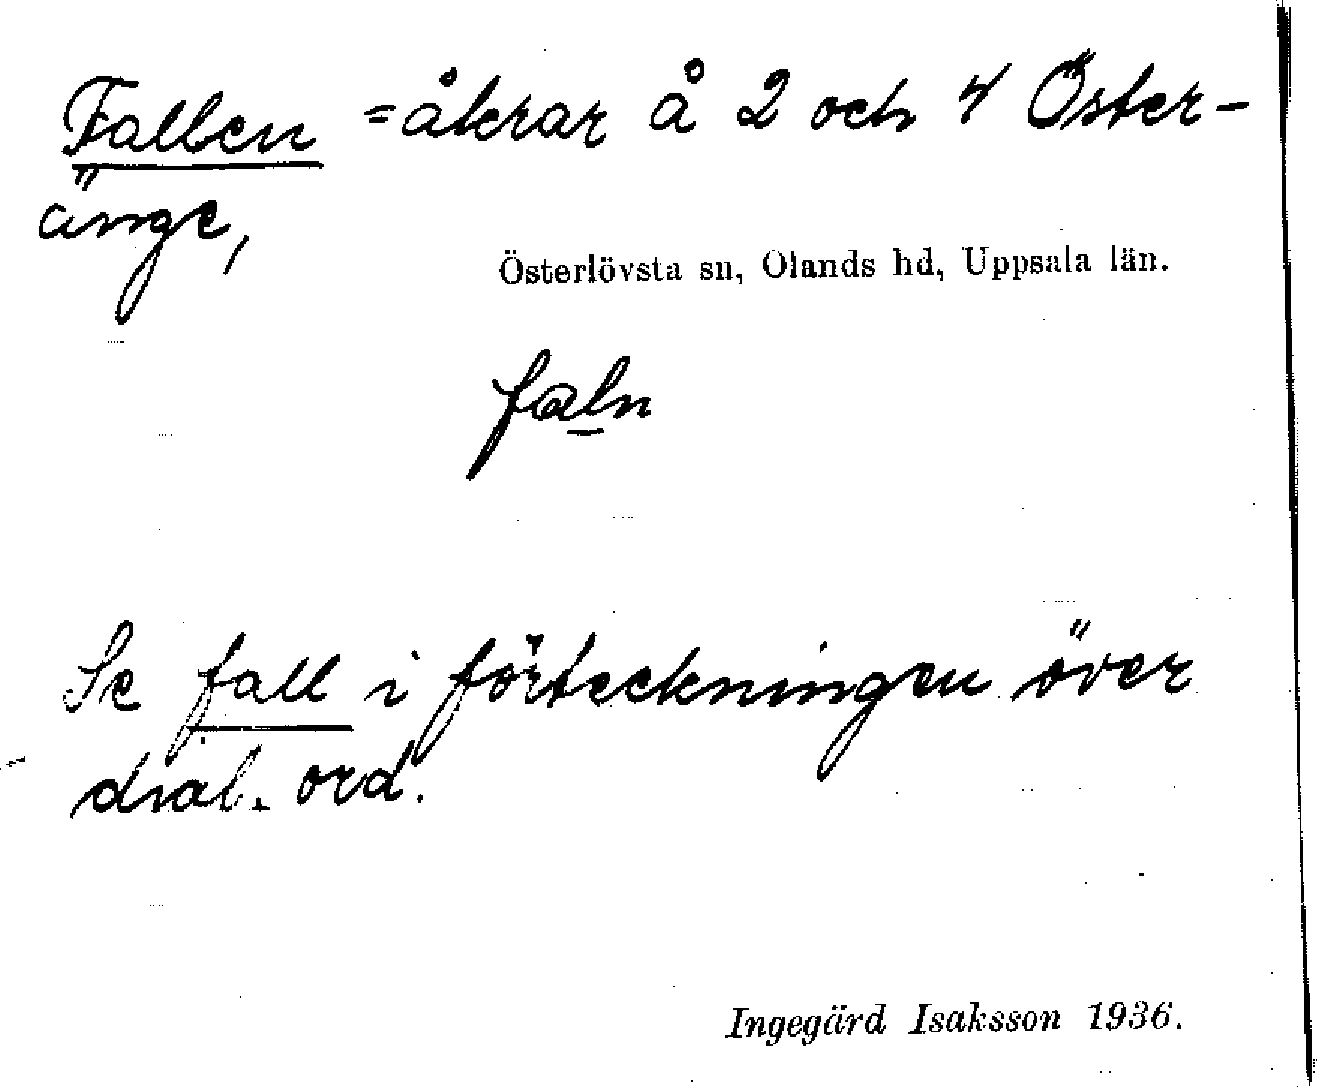 Fallen = åkrar å 2 och 4 Öster-
änge,
Österlövsta sn, Olands hd, Uppsala län.
faln
Se fall i förteckningen över
dial. ord.
Ingegärd Isaksson 1936.